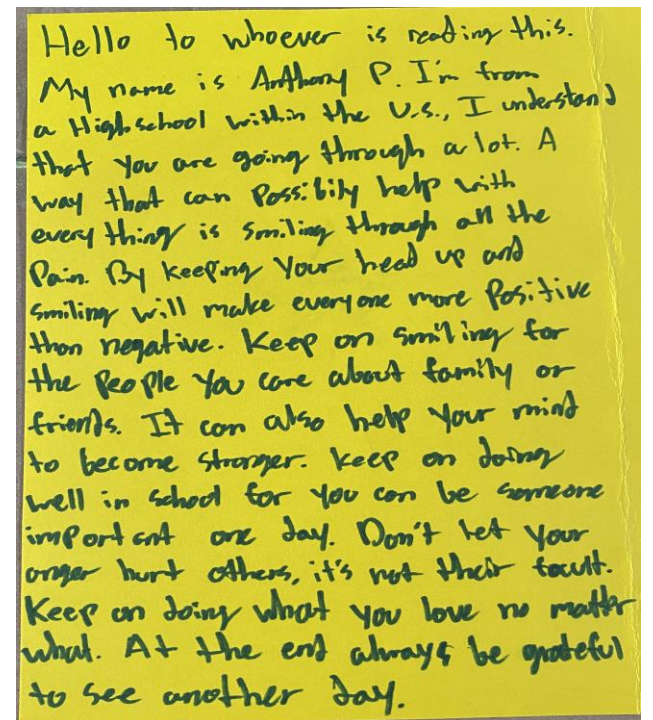 Hello to whoever is reading this.
My name is Anthony P. I'm from
a Highschool within the U.S., I understand
that you are going through a lot. A
way that can Possibily help with
every thing is smiling through all the
Pain. By keeping Your head up and
smiling will make everyone more Positive
than negative. Keep on smiling for
the People You care about family or
friends. It can also help Your mind
to become stronger. Keep on doing
well in school for you can be someone
important one day. Don't let Your
anger hurt others, it's not their facult.
Keep on doing what you love no matter
what. At the end always be grateful
to see another day.